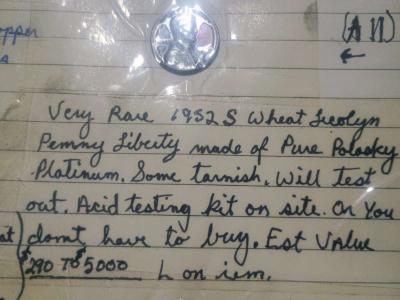 opper
A
(A11)
←
Very Rare 1952 S Wheat Lincolyn
Penny Liberty made of Pure Polosky
Platinum. Some tarnish. Will test
out. Acid testing kit on site. Or You
at
dont have to buy. Est Value
$290 TO $5000 on